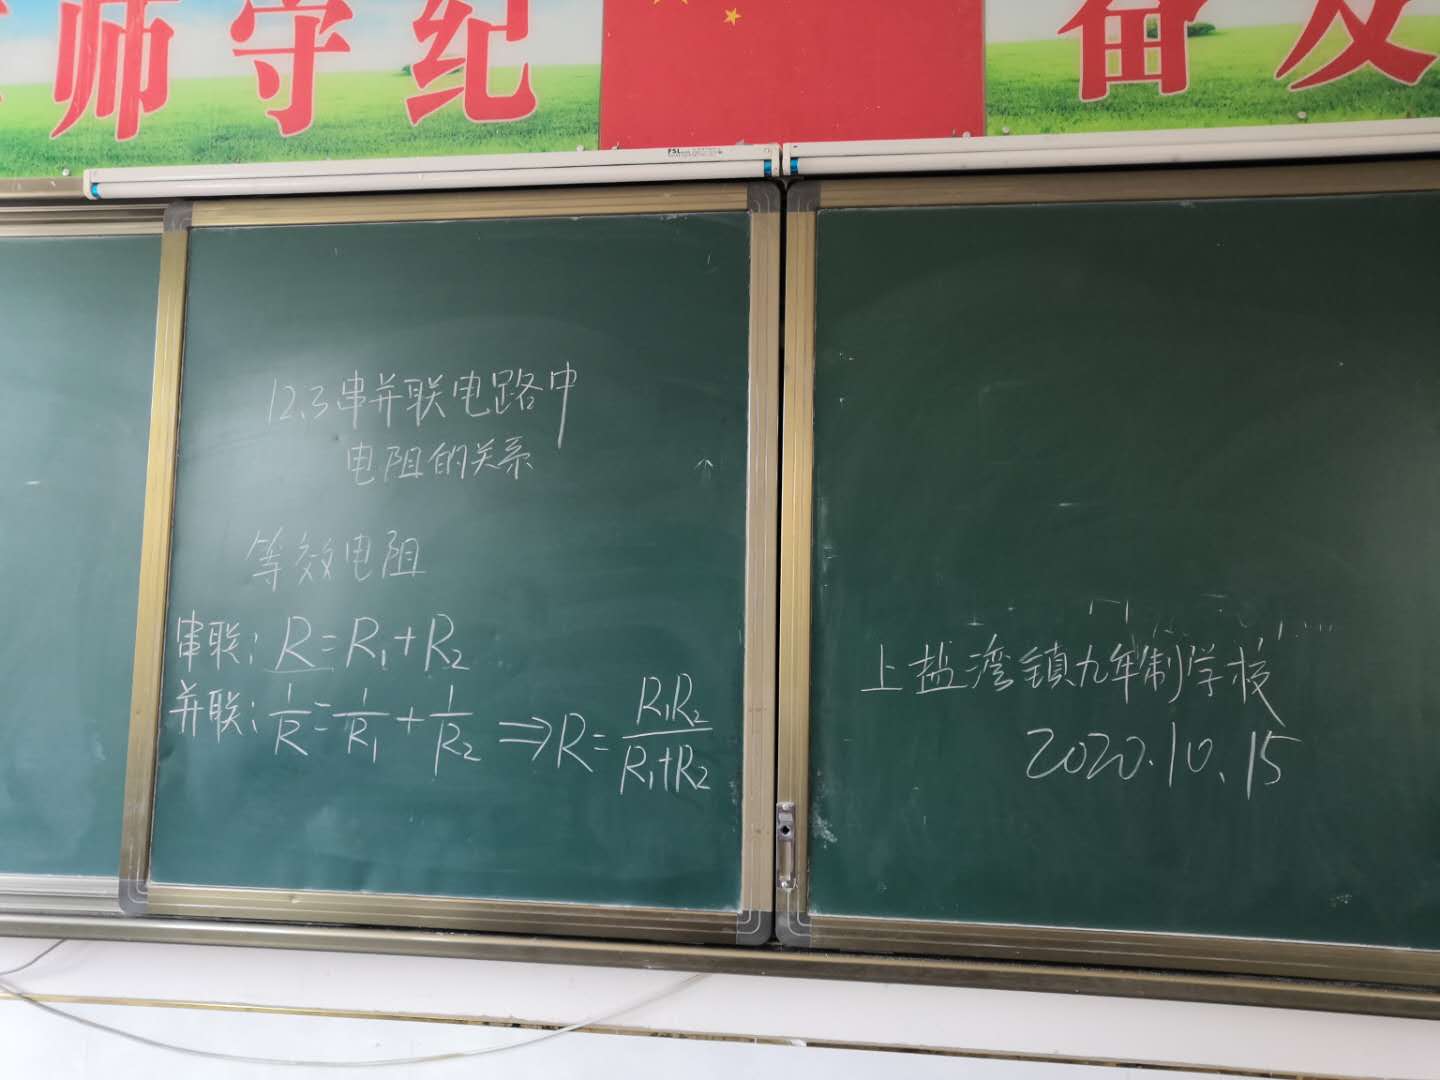 师守纪
奋发
FSL
12.3串并联电路中
电阻的关系
等效电阻
串联: R=R₁+R₂
并联: 1/R=1/R₁+1/R₂ ⇒R=R₁R₂/R₁+R₂
上盐湾镇九年制学校
2020.10.15